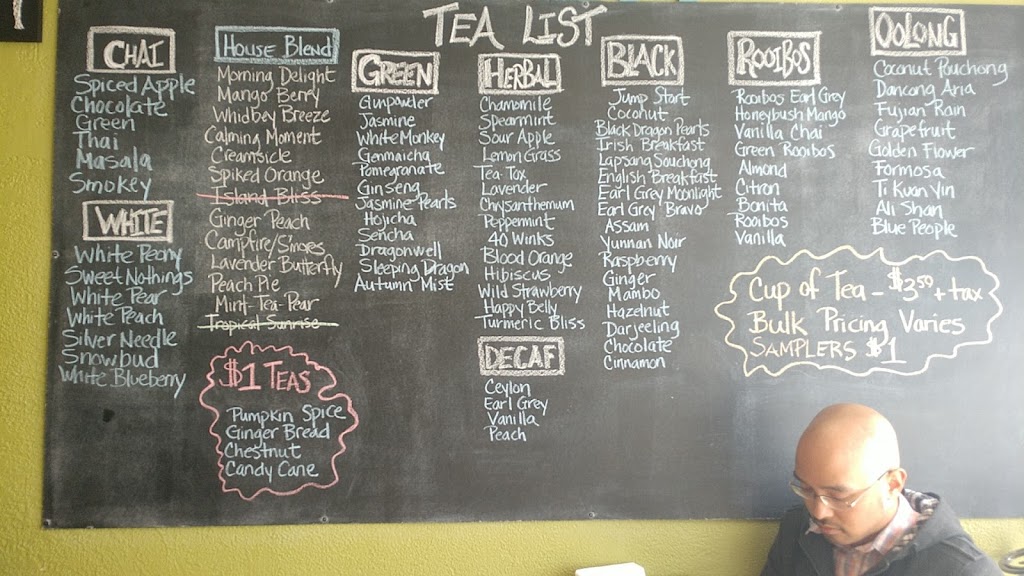 TEA LIST
CHAI
Spiced Apple
Chocolate
Green
Thai
Masala
Smokey
WHITE
White Peony
Sweet Nothings
White Pear
White Peach
Silver Needle
Snowbud
White Blueberry
HOUSE BLEND
Morning Delight
Mango Berry
Whidbey Breeze
Calming Moment
Creamsicle
Spiked Orange
Island Bliss
Ginger Peach
Campfire/Smores
Lavender Butterfly
Peach Pie
Mint-Tea-Pear
Tropical Sunrise
$1 TEAS
Pumpkin Spice
Ginger Bread
Chestnut
Candy Cane
GREEN
Gunpowder
Jasmine
White Monkey
Genmaicha
Pomegranate
Ginseng
Jasmine Pearls
Hojicha
Sencha
Dragonwell
Sleeping Dragon
Autumn Mist
HERBAL
Chamomile
Spearmint
Sour Apple
Lemon Grass
Tea-Tox
Lavender
Chrysanthemum
Peppermint
40 Winks
Blood Orange
Hibiscus
Wild Strawberry
Happy Belly
Turmeric Bliss
DECAF
Ceylon
Earl Grey
Vanilla
Peach
BLACK
Jump Start
Coconut
Black Dragon Pearls
Irish Breakfast
Lapsang Souchong
English Breakfast
Earl Grey Moonlight
Earl Grey Bravo
Assam
Yunnan Noir
Raspberry
Ginger
Mambo
Hazelnut
Darjeeling
Chocolate
Cinnamon
ROOIBOS
Rooibos Earl Grey
Honeybush Mango
Vanilla Chai
Green Rooibos
Almond
Citron
Bonita
Rooibos
Vanilla
OOLONG
Coconut Pouchong
Dancong Aria
Fujian Rain
Grapefruit
Golden Flower
Formosa
Ti Kuan Yin
Ali Shan
Blue People
Cup of Tea - $3.50 + tax
Bulk Pricing Varies
SAMPLERS $1